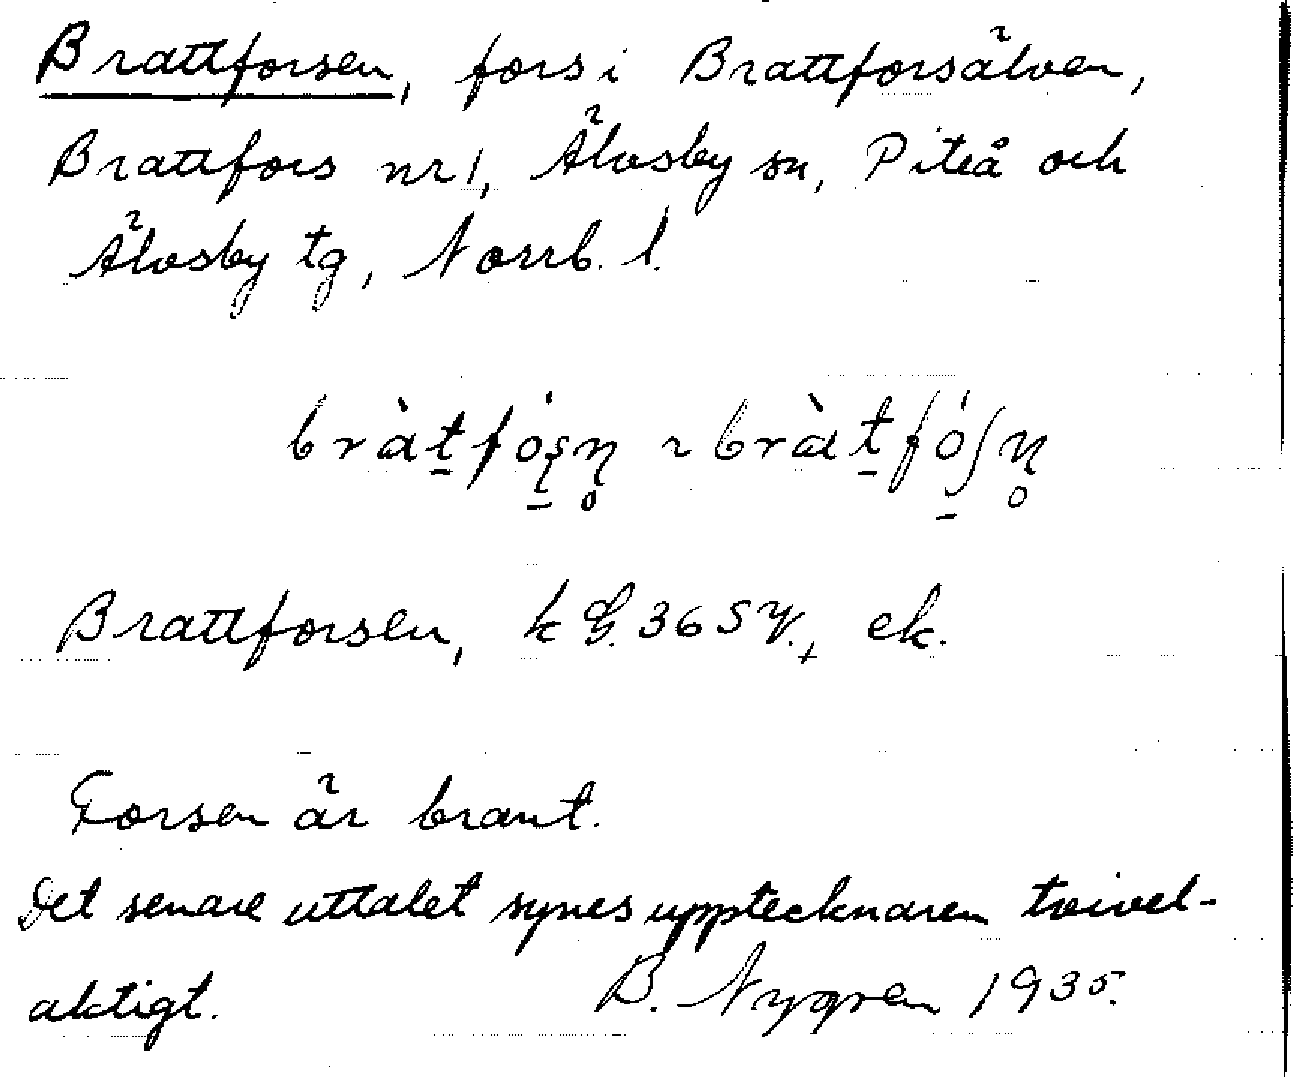 Brattforsen, fors i Brattforsälven,
Brattfors nr 1, Älvsby sn, Piteå och
Älvsby tg, Norrb. l.
Brattforsen, ek.
Forsen är brant.
Det senare uttalet synes upptecknaren tvivel-
aktigt. B. Nygren 1935.